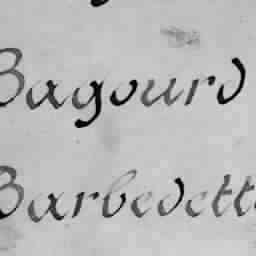 Bagourd
Barbedette